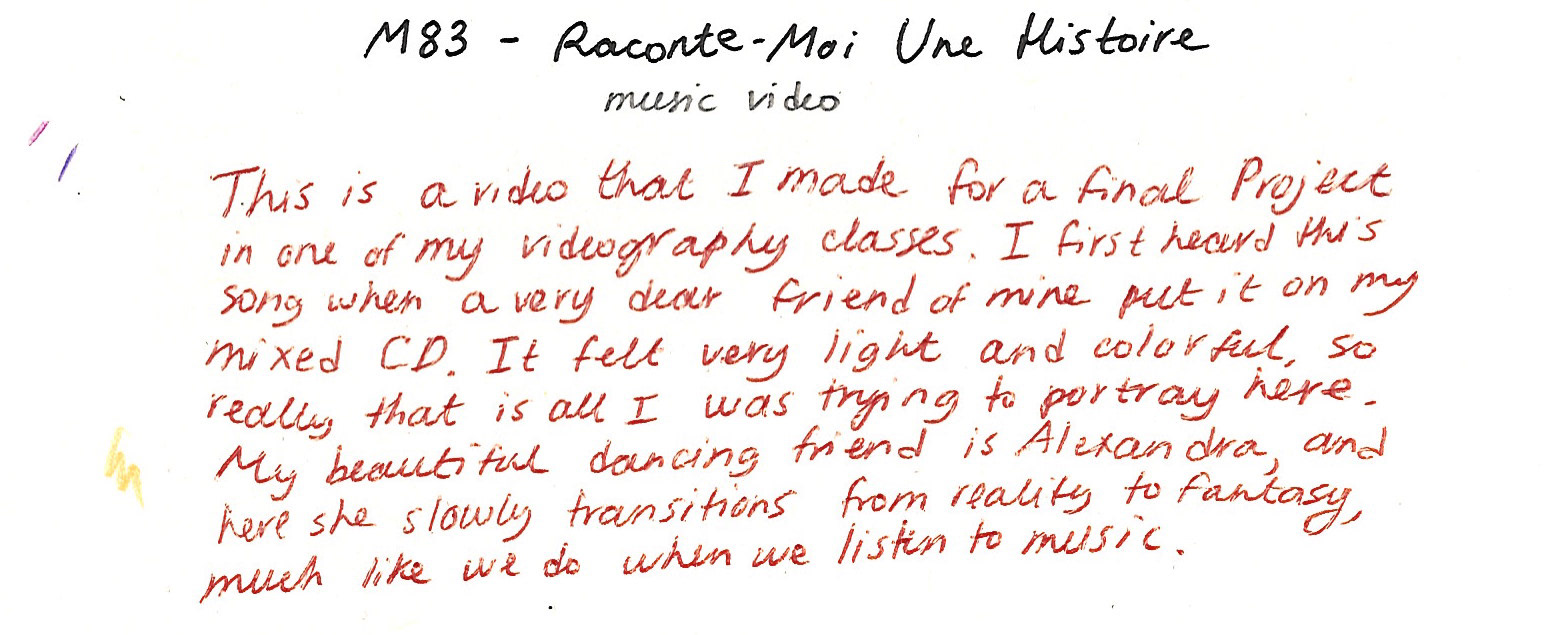 M83 - Raconte-Moi Une Histoire
music video
This is a video that I made for a final Project
in one of my videography classes. I first heard this
song when a very dear friend of mine put it on my
mixed CD. It felt very light and colorful, so
really that is all I was trying to portray here.
My beautiful dancing friend is Alexandra, and
here she slowly transitions from reality to fantasy,
much like we do when we listen to music.